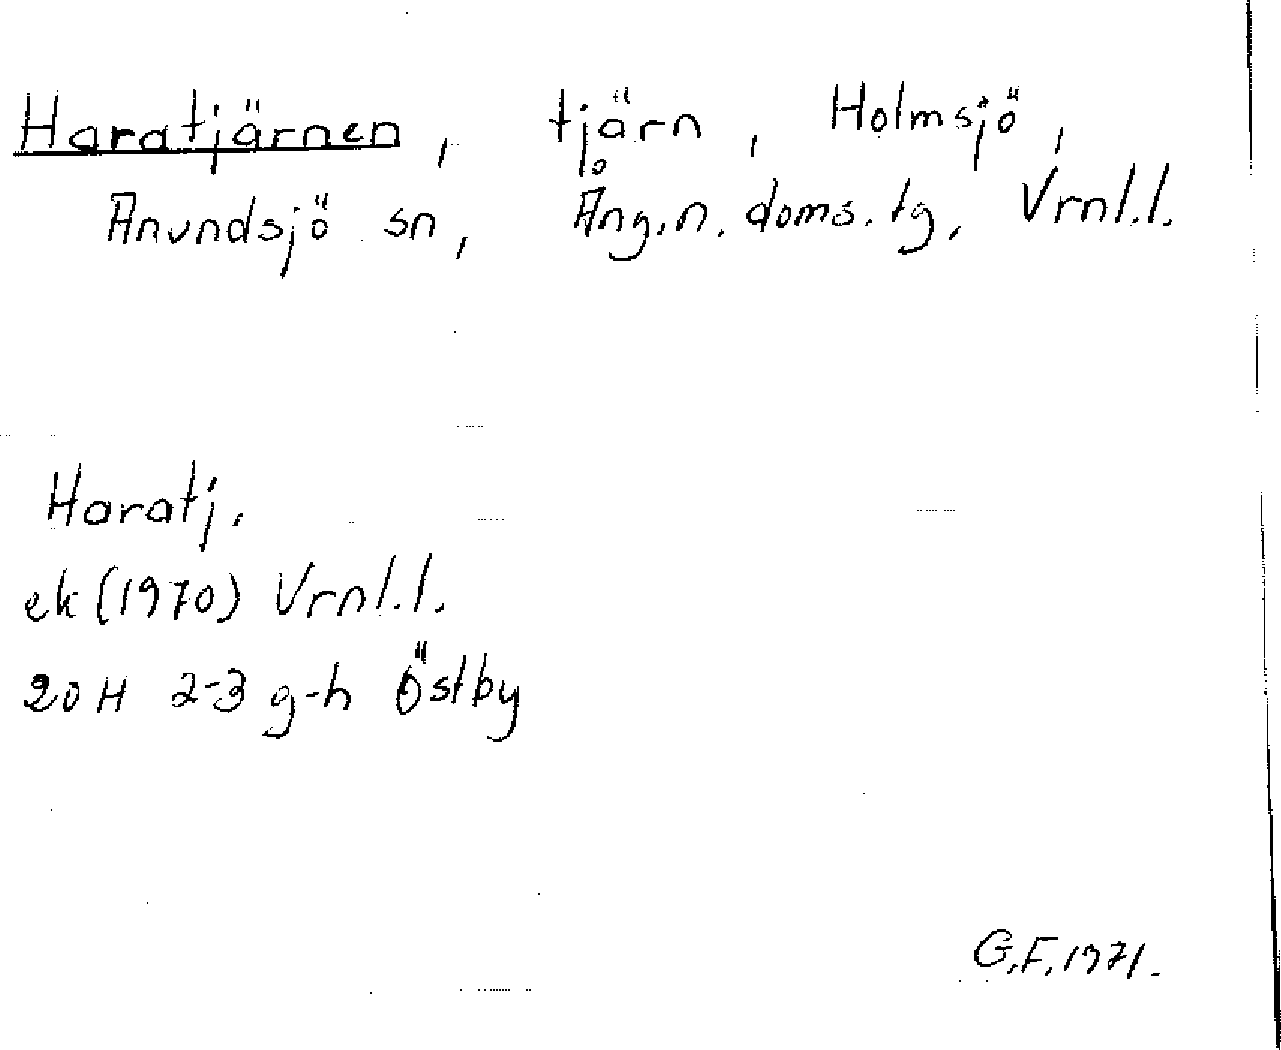 Haratjärnen, tjärn, Holmsjö,
Anundsjö sn, Ång.n. doms. tg, Vrnl.l.
Haratj.
ek (1970) Vrnl.l.
20 H 2-3 g-h Östby
G.F. 1971.